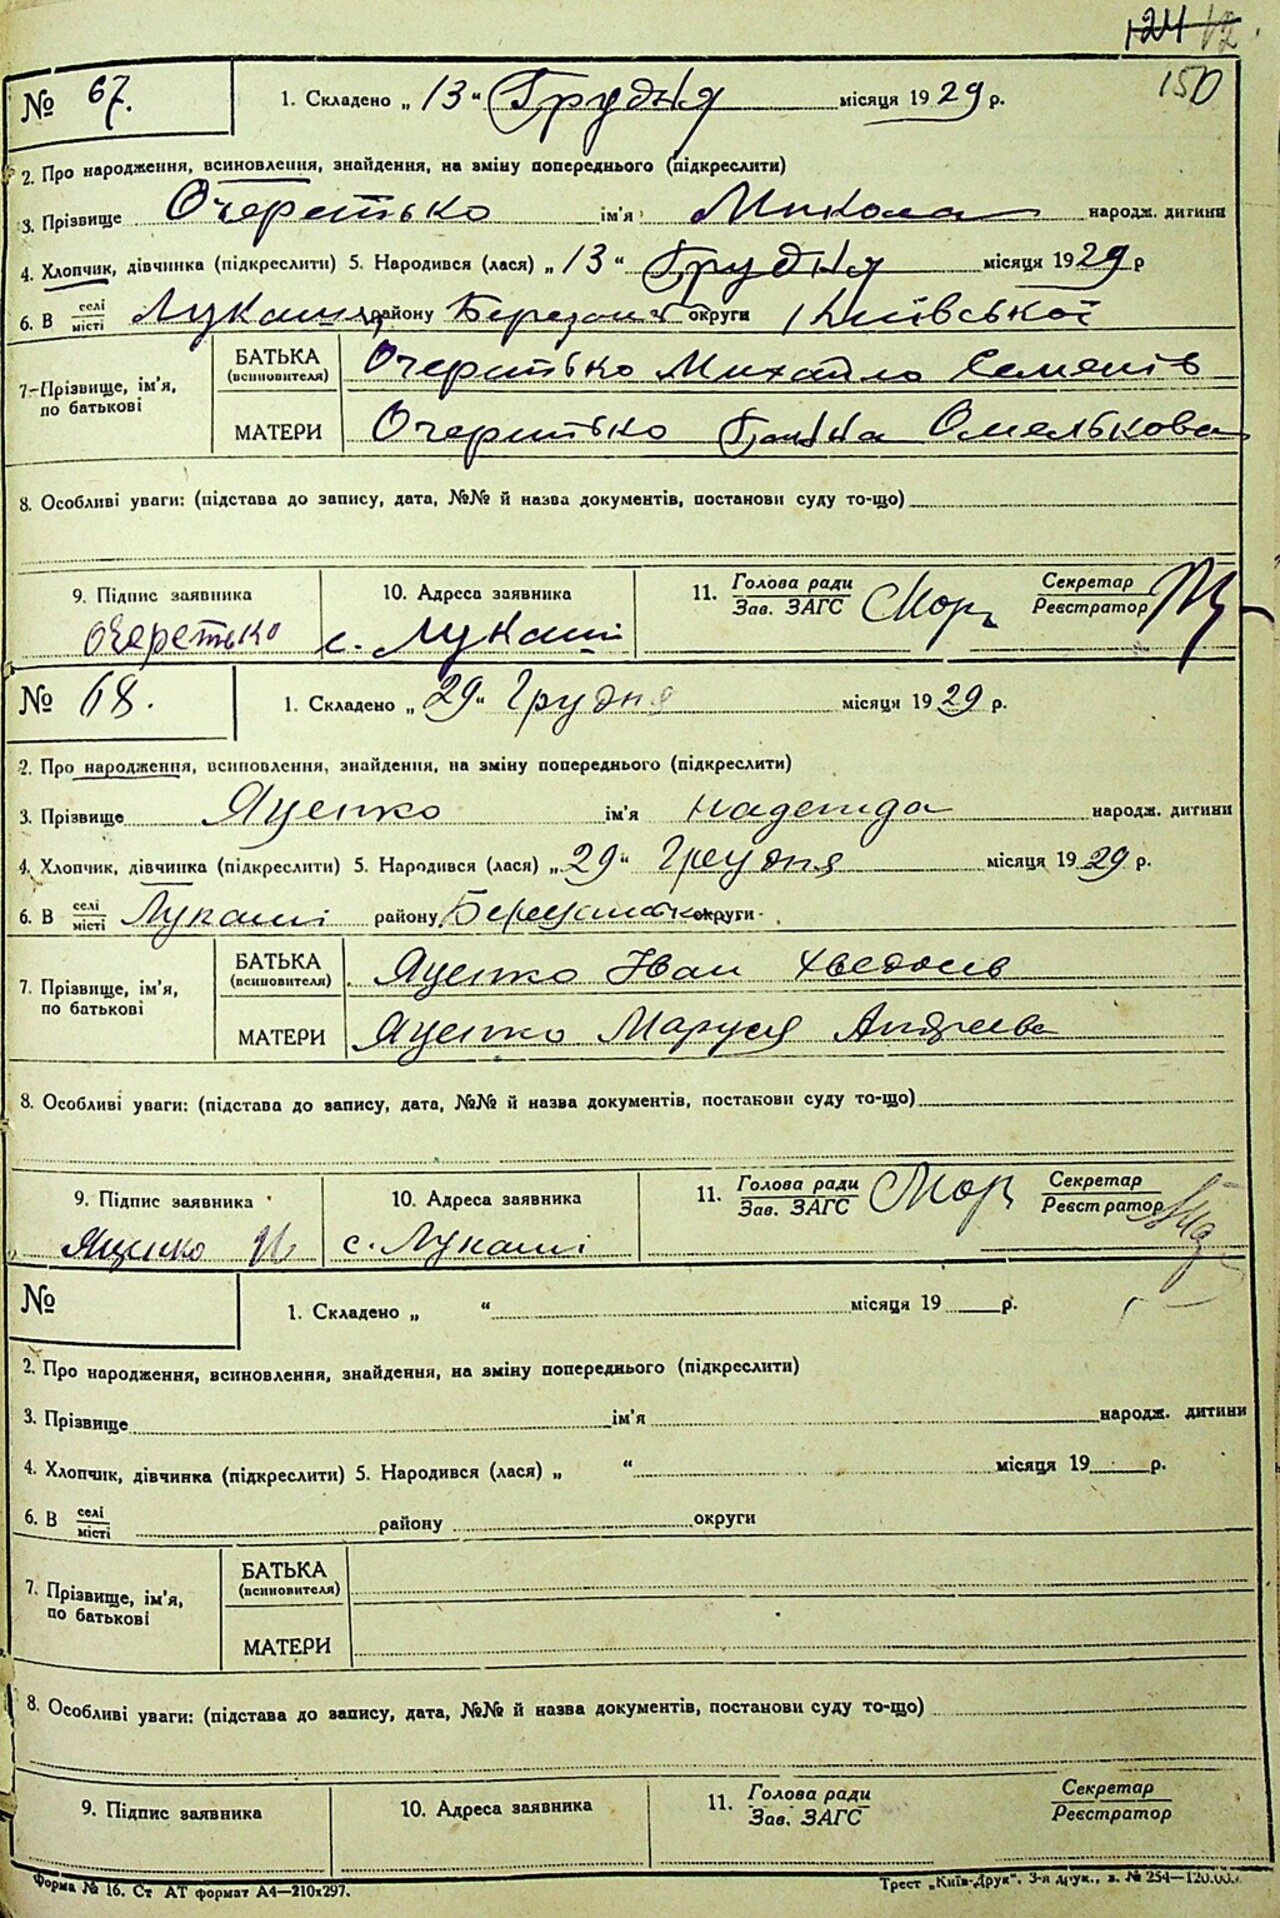 124 12
150
№ 67.
1. Складено „ 13 “ Грудня місяця 1929 р.
2. Про народження, всиновлення, знайдення, на зміну попереднього (підкреслити)
3. Прізвище Очеретько ім'я Микола народж. дитини
4. Хлопчик, дівчинка (підкреслити) 5. Народився (лася) „ 13 “ Грудня місяця 1929 р
6. В селі/місті Лукаші району Березан округи Київської
7. Прізвище, ім'я, по батькові
БАТЬКА (всиновителя) Очеритько Михайло Семенів
МАТЕРИ Очеритько Ганна Омелькова
8. Особливі уваги: (підстава до запису, дата, №№ й назва документів, постанови суду то-що)
9. Підпис заявника 10. Адреса заявника 11. Голова ради/Зав. ЗАГС Мор Секретар/Реєстратор
Очеретько с. Лукаші
№ 68.
1. Складено „ 29 “ Грудня місяця 1929 р.
2. Про народження, всиновлення, знайдення, на зміну попереднього (підкреслити)
3. Прізвище Яценко ім'я Надежда народж. дитини
4. Хлопчик, дівчинка (підкреслити) 5. Народився (лася) „ 29 “ Грудня місяця 1929 р.
6. В селі/місті Лукаші району округи
7. Прізвище, ім'я, по батькові
БАТЬКА (всиновителя) Яценко Іван Хведосів
МАТЕРИ Яценко Маруся Андрієва
8. Особливі уваги: (підстава до запису, дата, №№ й назва документів, постанови суду то-що)
9. Підпис заявника 10. Адреса заявника 11. Голова ради/Зав. ЗАГС Мор Секретар/Реєстратор
Яценко И с. Лукаші
№
1. Складено „ “ місяця 19 р.
2. Про народження, всиновлення, знайдення, на зміну попереднього (підкреслити)
3. Прізвище ім'я народж. дитини
4. Хлопчик, дівчинка (підкреслити) 5. Народився (лася) „ “ місяця 19 р.
6. В селі/місті району округи
7. Прізвище, ім'я, по батькові
БАТЬКА (всиновителя)
МАТЕРИ
8. Особливі уваги: (підстава до запису, дата, №№ й назва документів, постанови суду то-що)
9. Підпис заявника 10. Адреса заявника 11. Голова ради/Зав. ЗАГС Секретар/Реєстратор
Форма № 16. Ст АТ формат А4—210х297. Трест „Київ-Друк“. 3-я друк., з. № 254—120.00